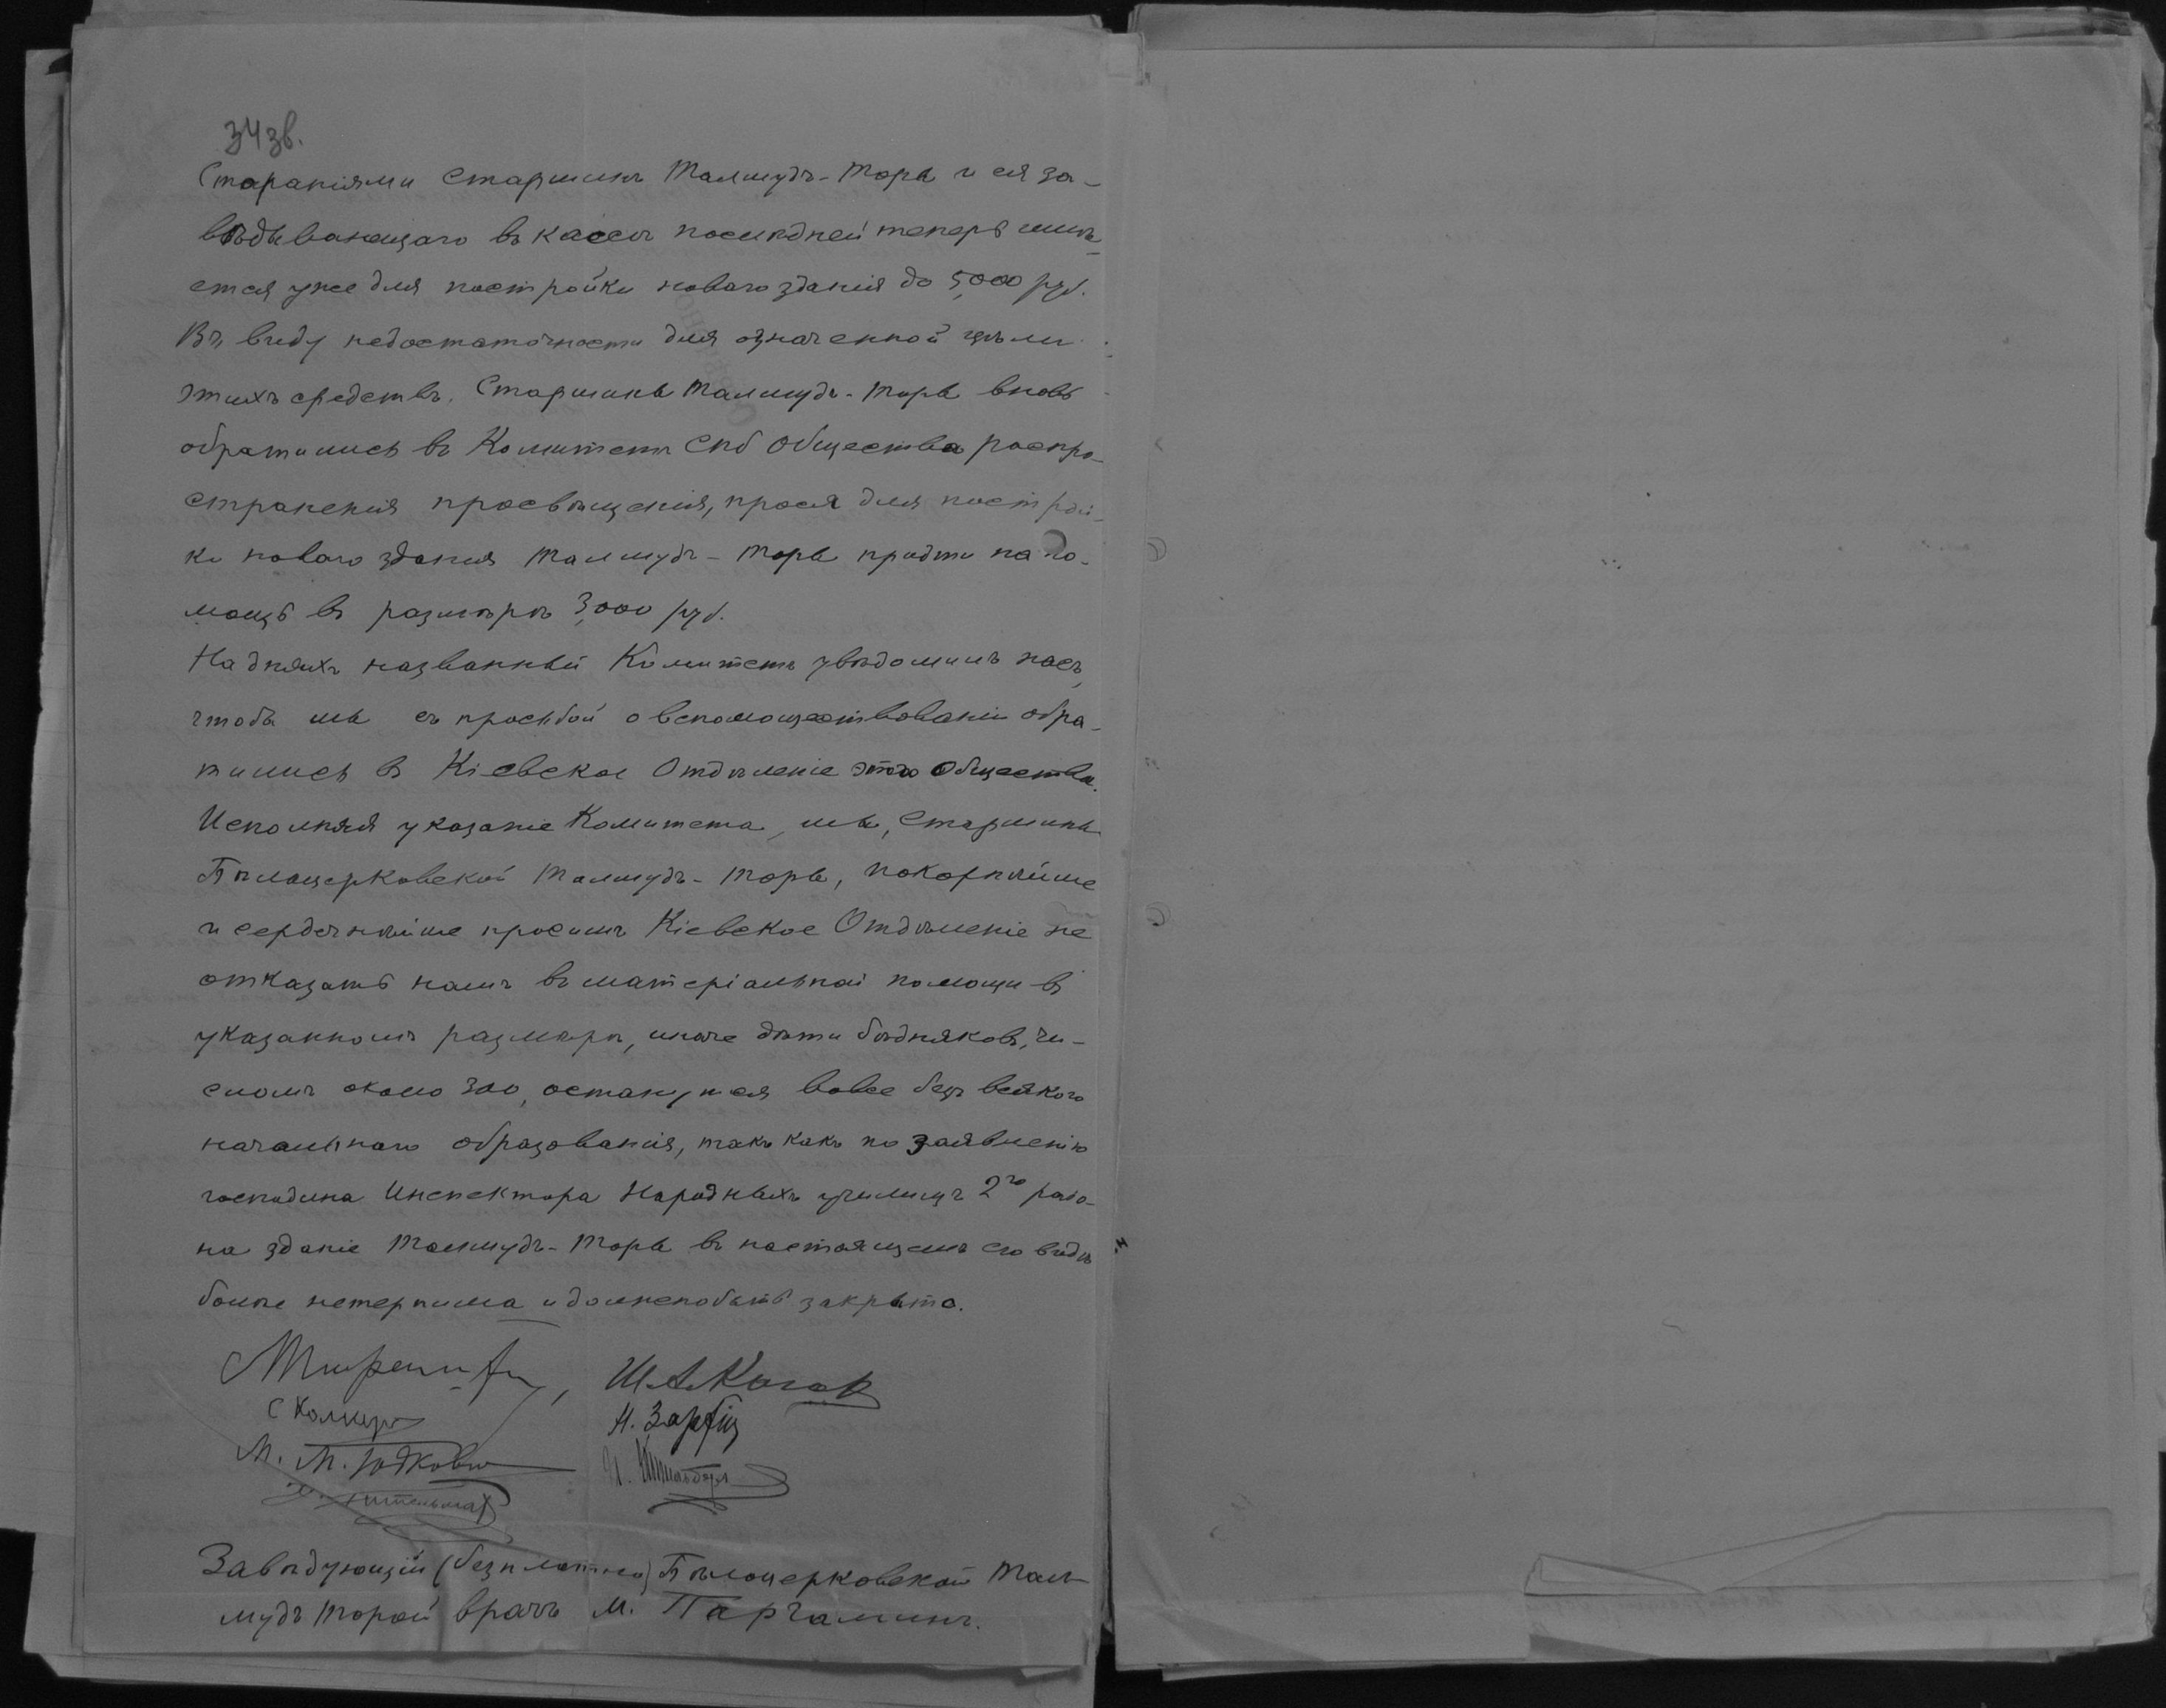 34зв.
Стараніями Старшинъ Талмудъ-Торы и ея за-
вѣдывающаго въ кассѣ послѣдней теперь имѣ-
ется уже для постройки новаго зданія до 5,000 руб.
Въ виду недостаточности для означенной цѣли
этихъ средствъ, Старшины Талмудъ-Торы вновь
обратились въ Комитетъ Спб Общества распро-
страненія просвѣщенія, прося для построй-
ки новаго зданія Талмудъ-Торы придти на по-
мощь въ размѣрѣ 3,000 руб.
На дняхъ названный Комитетъ увѣдомилъ насъ,
чтобы мы съ просьбой о вспомоществованіи обра-
тились въ Кіевское Отдѣленіе этого Общества.
Исполняя указаніе Комитета, мы, Старшины
Бѣлоцерковской Талмудъ-Торы, покорнѣйше
и сердечнѣйше просимъ Кіевское Отдѣленіе не
отказать намъ въ матеріальной помощи въ
указанномъ размѣрѣ, иначе дѣти бѣдняковъ, чи-
сломъ около 300, останутся вовсе безъ всякого
начальнаго образованія, такъ какъ по заявленію
господина Инспектора Народныхъ училищъ 2го райо-
на зданіе Талмудъ-Торы въ настоящемъ его видѣ
болѣе нетерпима и должно быть закрыто.
Ш. А. Коган
Н. Зарбиц
М. М. Юдкови
Завѣдующій (безплатно) Бѣлоцерковской Тал-
мудъ Торой врачъ М. Паргаминъ.